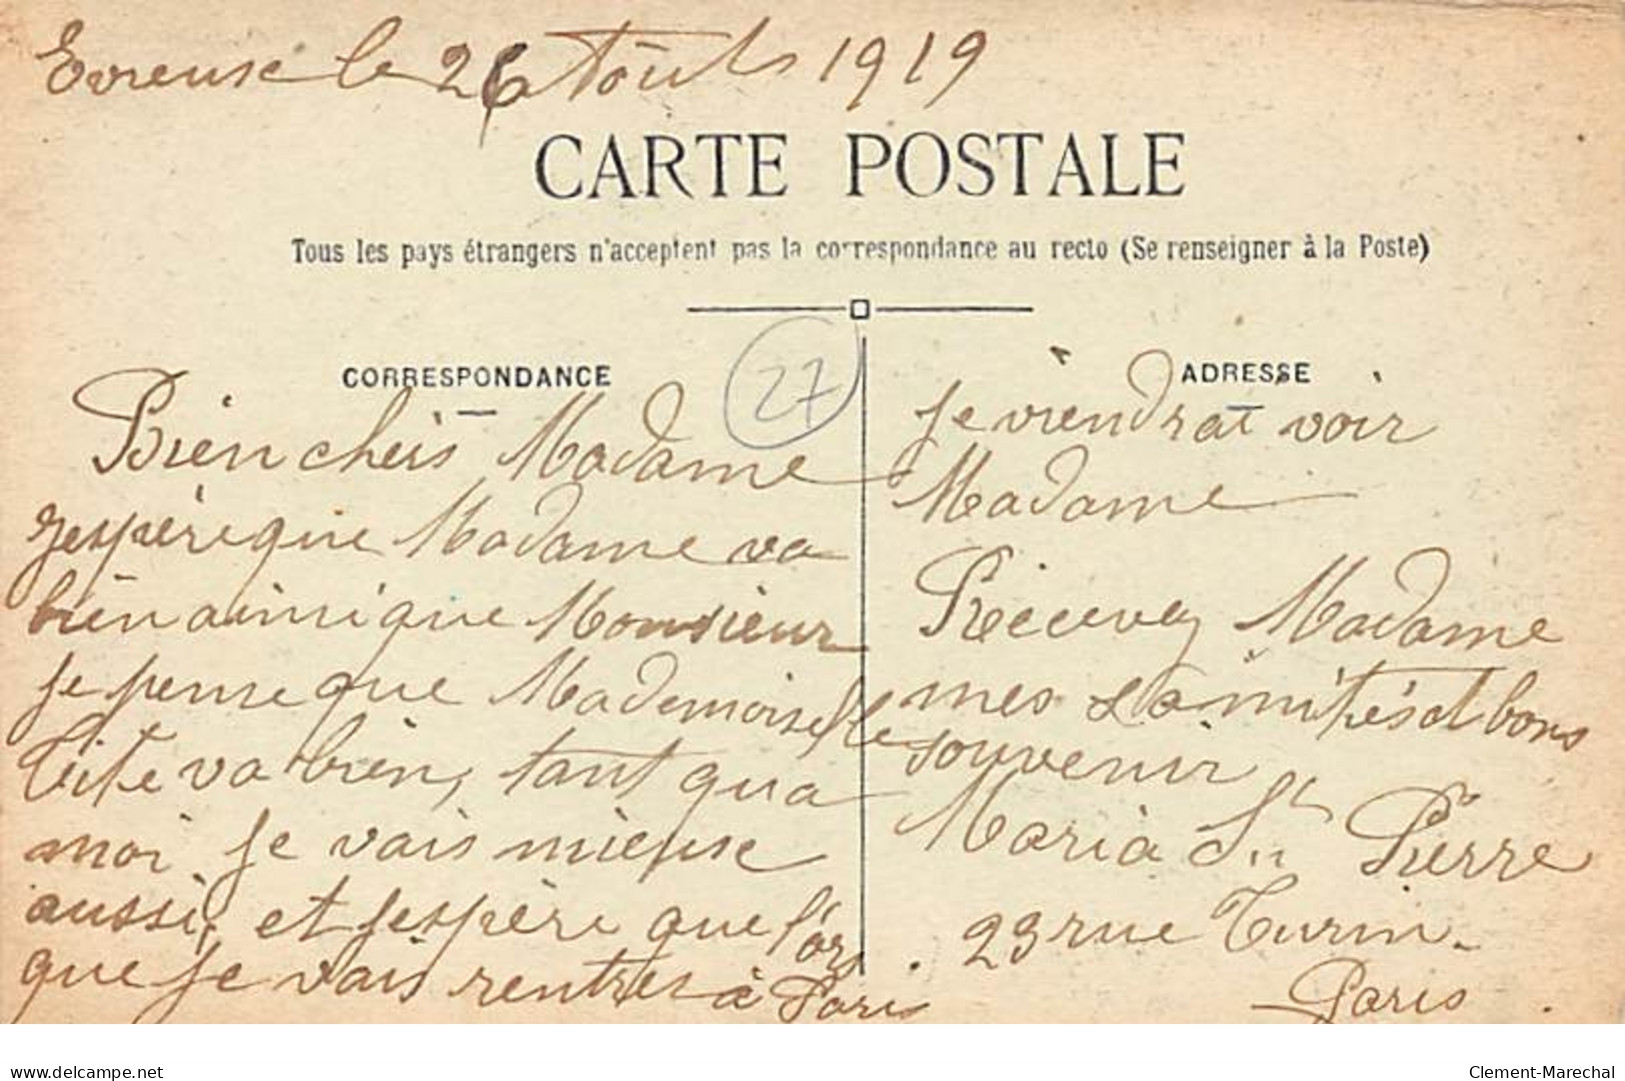 Evreuse le 26 Aoûts 1919
CARTE POSTALE
Tous les pays étrangers n'acceptent pas la correspondance au recto (Se renseigner à la Poste)
27
CORRESPONDANCE
Bien cheis Madame
jespère que Madame va
bien ainsi que Monsieur
je pense que Mademoiselle
va bien, tant qua
moi je vais mieuse
aussi, et jespère que l'ors
que je vais rentrer à Paris
ADRESSE
je viendrai voir
Madame
Récevez Madame
mes amitiés et bons
souvenir
Maria St Pierre
23 rue Turin
Paris
delcampe.net
Clement-Marechal